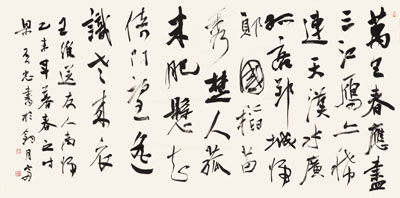 萬里春應盡
三江雁亦稀
連天漢水廣
孤客郢城歸
鄖國稻苗
秀楚人菰
米肥懸知
倚門望遙
識老萊衣
王維送友人南歸
乙未年暮春之時
書於